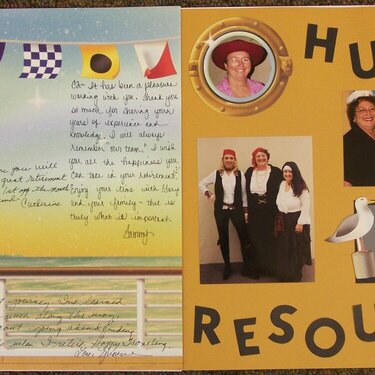 Co- It has been a pleasure
working with you. Thank you
so much for sharing your
years of experience and
knowledge. I will always
remember "our team." I wish
you all the happiness you
can take in your retirement.
Enjoy your time with Gary
and your family - that is
truly what is important.
Tammy
you will
great retirement
Catherine
journey. I've learned
much along the way,
out going ahead finding
Happy Travelling
HU
RESOU